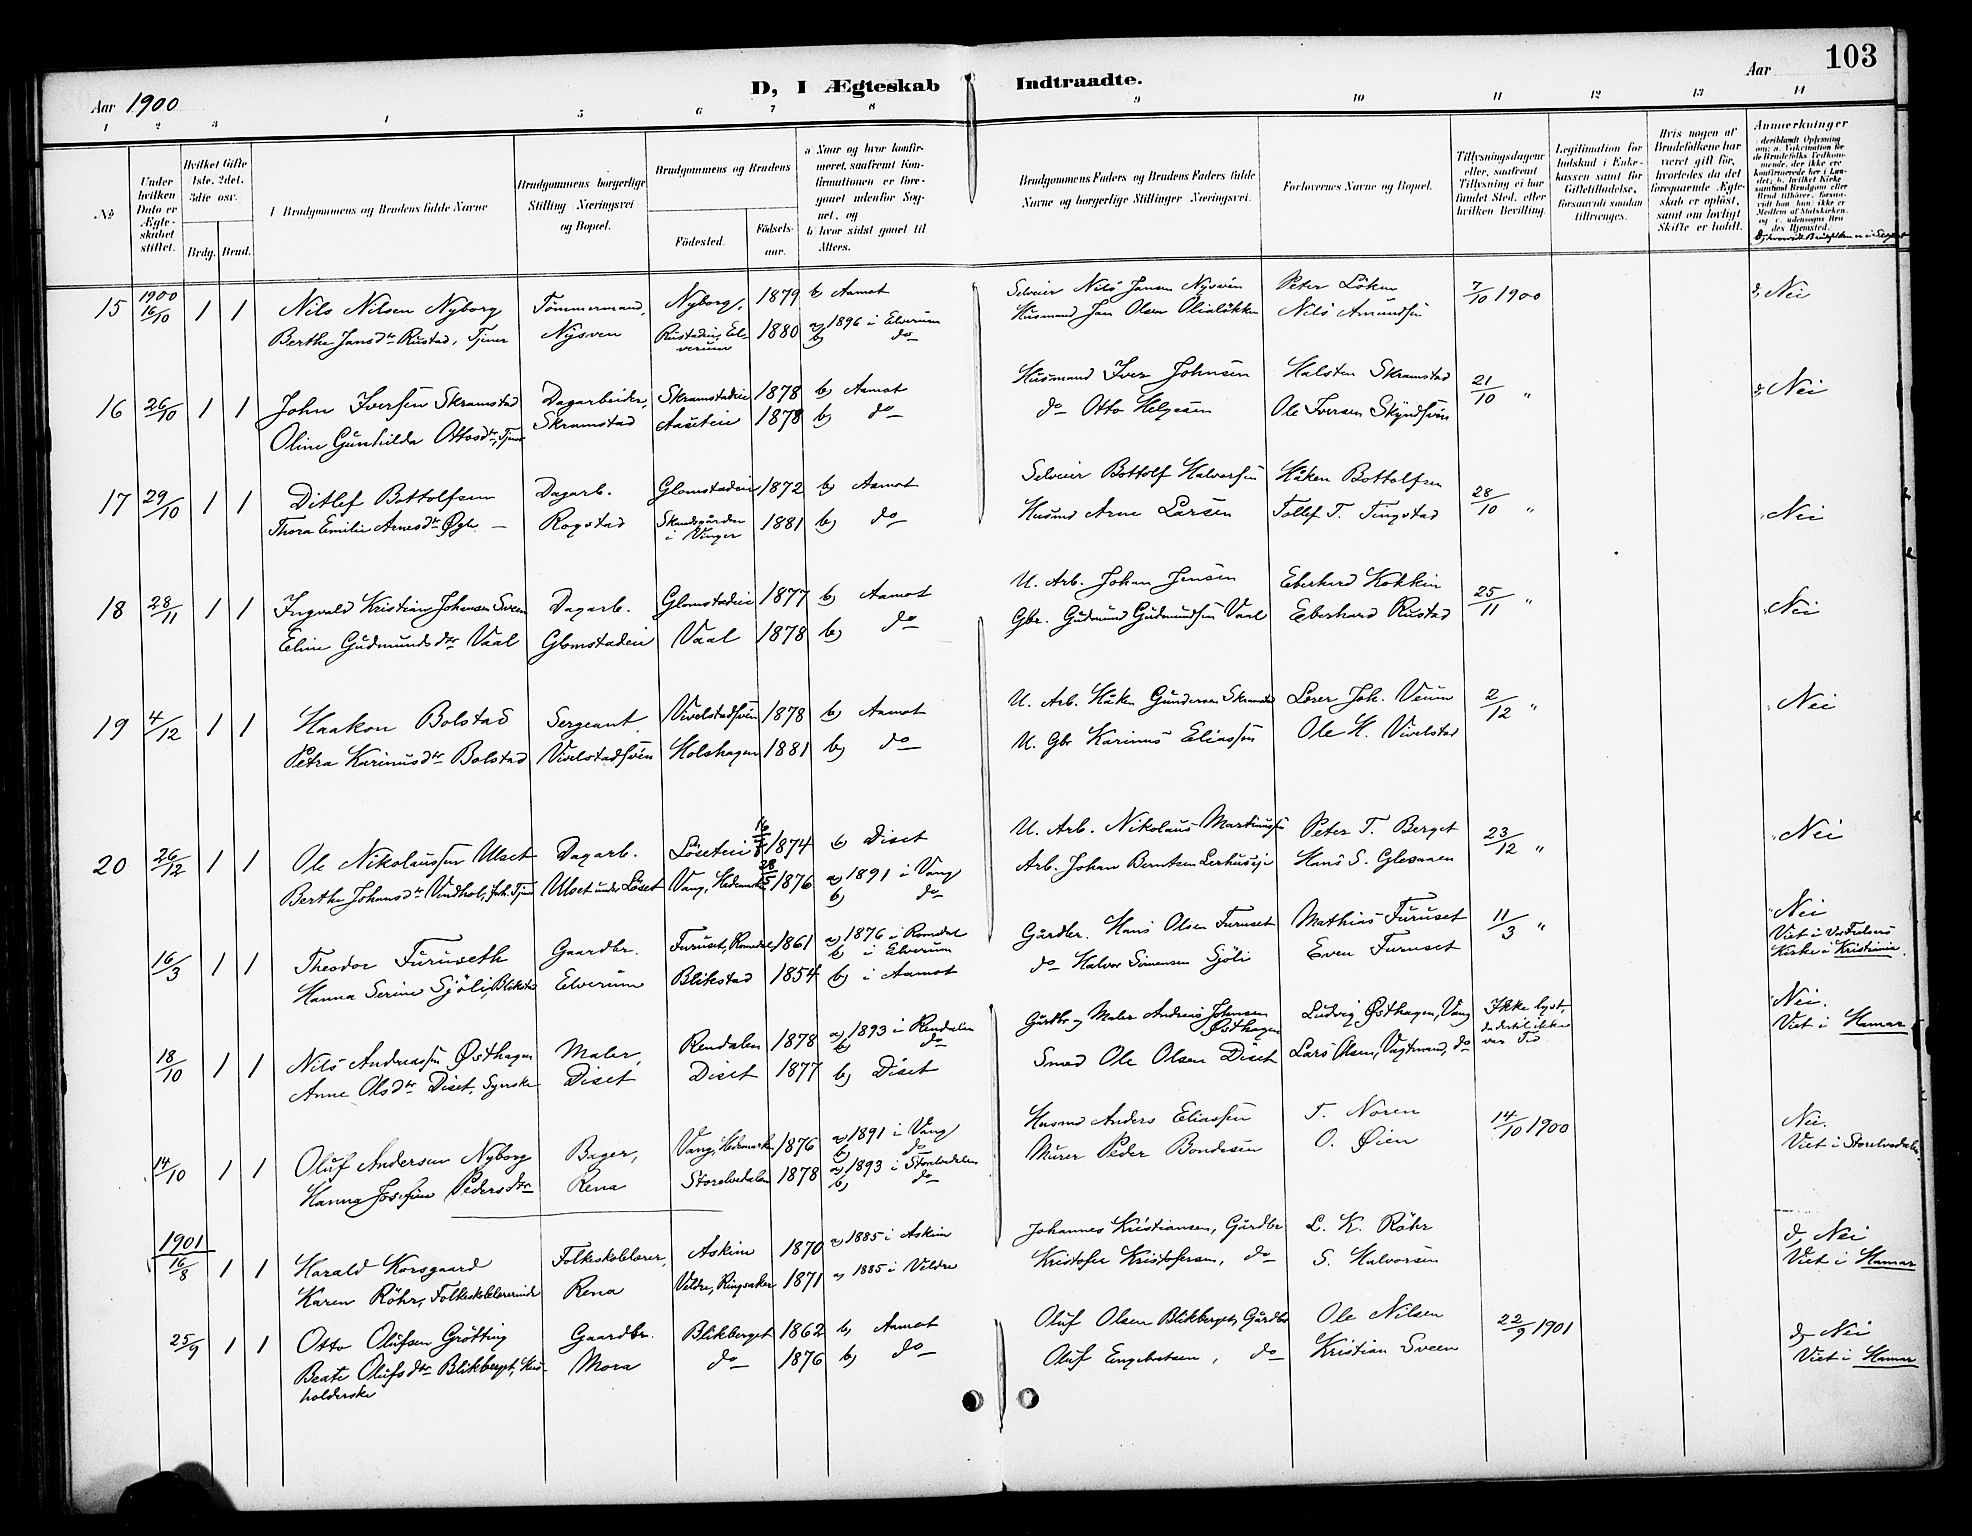 103
Aar 1900
D, I Ægteskab Indtraadte.
Aar
1 2 3 4 5 6 7 8 9 10 11 12 13 14
No
Under hvilken Dato er Ægteskabet stiftet.
Hvilket Gifte 1ste, 2det, 3die osv.
Brdg. Brud.
Brudgommens og Brudens fulde Navne
Brudgommens borgerlige Stilling Næringsvei og Bopæl.
Brudgommens og Brudens
Fødested.
Fødselsaar.
a Naar og hvor konfirmeret, saafremt Konfirmationen er foregaaet udenfor Sognet, og
b hvor sidst gaaet til Alters.
Brudgommens Faders og Brudens Faders fulde Navne og borgerlige Stillinger Næringsvei.
Forlovernes Navne og Bopæl.
Tillysningsdagene eller, saafremt Tillysning ei har fundet Sted, efter hvilken Bevilling.
Legitimation for Indskud i Enkekassen samt for Giftetilladelse, forsaavidt saadan tiltrænges.
Hvis nogen af Brudefolkene har været gift før, hvorledes da det foregaaende Ægteskab er opløst, samt om lovligt Skifte er holdt.
Anmerkninger
15 1900 16/10 1 1 Nils Nilsen Nyborg Tømmermand, Nyborg, 1879 b) Aamot Selveier Nils Jansen Nysven Peter Löken 7/10 1900 d, Nei
Berthe Jansdtr Rustad, Tjener Nysven Rustadeie, Elverum 1880 a) 1896 i Elverum b) do Husmand Jan Olsen Olialökken Nils Amundsen
16 26/10 1 1 John Iversen Skramstad Dagarbeider, Skramstadeie 1878 b) Aamot Husmand Iver Johnsen Halsten Skramstad 21/10 " d, Nei
Oline Gunhilda Ottosdtr, Tjener Skramstad Aaseteie 1878 b) do do Otto Helgesen Ole Iversen Skyndsveen
17 29/10 1 1 Ditlef Bottolfsen Dagarb. Glomstadeie 1872 b) Aamot Selveier Bottolf Halvorsen Håken Bottolfsen 28/10 " Nei
Thora Emilie Arnesdtr Øgle — Rogstad i Vinger 1881 b) do Husmd Arne Larsen Tollef T. Tingstad
18 28/11 1 1 Ingvald Kristian Johansen Sveen Dagarb. Glomstadeie 1877 b) Aamot U. Arb. Johan Jensen Eberhard Kokkin 25/11 " Nei
Eline Gudmundsdtr Vaal Glomstadeie Vaal 1878 b) do Gbr. Gudmund Gudmundsen Vaal Eberhard Rustad
19 4/12 1 1 Haakon Bolstad Sergeant Vivelstadsven 1878 b) Aamot U. Arb. Håken Gundersen Skramstad Lærer Joh. Veum 2/12 " Nei
Petra Karinusdtr Bolstad Vivelstadsven Holshagen 1881 b) do U. Gbr Karinus Eliassen Ole H. Vivelstad
20 26/12 1 1 Ole Nikolaussen Ulset Dagarb. Löseteie 1874 b Diset U. Arb. Nikolaus Martinussen Peter T. Berget 23/12 " Nei
Berthe Johansdtr Vindhol, Tjener Ulset under Löset Vang, Hedemarken 28/5 1876 a) 1891 i Vang b) do Arb. Johan Berntsen Lerhuseje Hans S. Glesaaen
16/3 1 1 Theodor Furuseth Gaardbr. Furuset, Romedal 1861 a) 1876 i Romedal b) i Elverum Gårdbr. Hans Olsen Furuset Mathias Furuset 11/3 " Nei
Viet i Vor Frelsers Kirke i Kristiania.
Hanna Serine Sjöli, Blikstad Elverum Blikstad 1854 b) i Aamot do Halvor Simensen Sjöli Even Furuset
18/10 1 1 Nils Andreassen Østhagen Maler, Rendalen 1878 a) 1893 i Rendalen b) do Gårdbr og Maler Andreas Johnsen Østhagen Ludvig Østhagen, Vang Ikke lyst, da dertil ikke var Tid Nei.
Viet i Hamar
Anne Olsdtr Diset, Syerske Diset Diset 1877 b) Diset Smed Ole Olsen Diset Lars Olsen, Vagtmand, do
14/10 1 1 Oluf Andersen Nyborg Bager, Vang, Hedemarken 1876 a) 1891 i Vang b) do Husmd Anders Eliassen T. Noren 14/10 1900 Nei.
Viet i Storelvedalen.
Hanna Josefine Pedersdtr Rena Storelvedalen 1878 a) 1893 i Storelvedalen b) do Murer Peder Bondesen O. Øien
1901
16/8 1 1 Harald Korsgaard Folkeskolelærer, Askim 1870 a) 1885 i Askim Johannes Kristiansen, Gårdbr L. K. Röhr d, Nei
Viet i Hamar
Karen Röhr, Folkeskolelærerinde Rena Veldre, Ringsaker 1871 a) 1885 i Veldre Kristofer Kristofersen, do S. Halvorsen
25/9 1 1 Otto Olufsen Grötting Gaardbr. Blikberget 1862 b) Aamot Oluf Olsen Blikberget, Gårdbr Ole Nilsen 22/9 1901 d, Nei
Viet i Hamar
Beate Olufsdtr Blikberget, Husholderske Mora do 1876 b) do Oluf Engebretsen, do Kristian Sveen